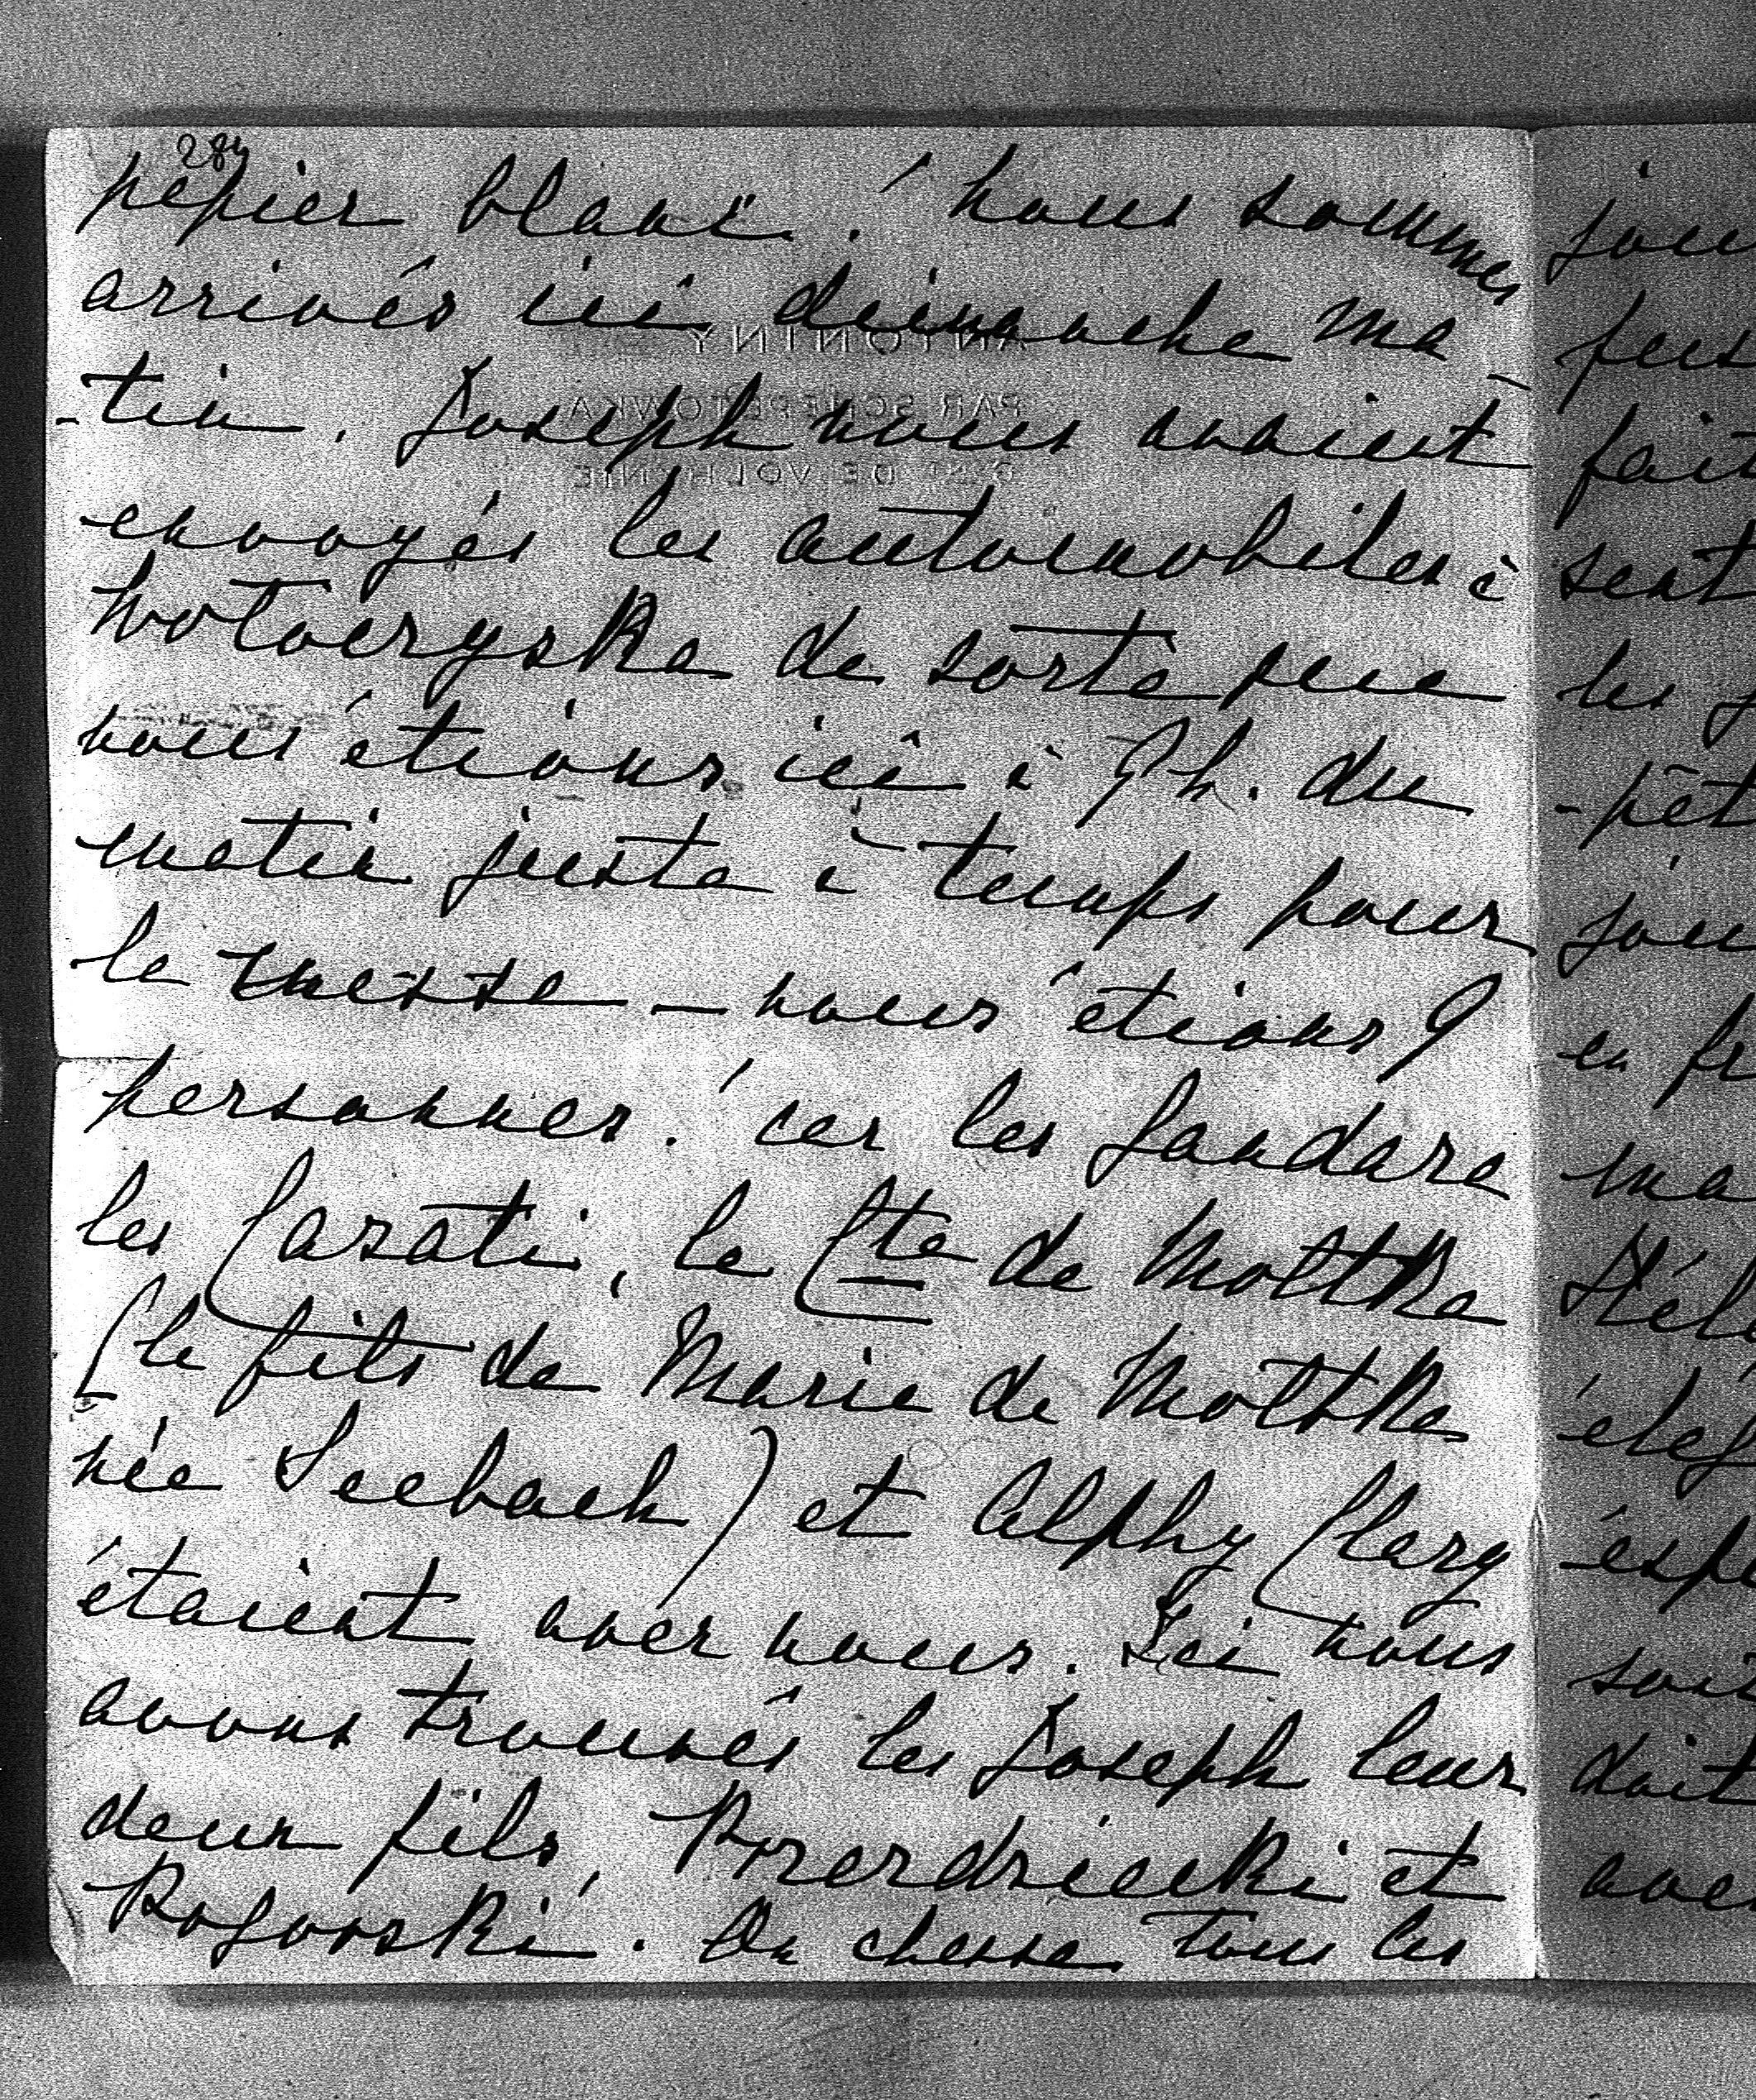 284
papier blanc! nous sommes
arrivés ici dimanche ma-
-tin. Joseph nous avaient
envoyés les automobiles à
Wołoczyska de sorte que
nous étions ici à 9 h. du
matin juste à temps pour
la messe – nous étions 9
personnes! car les Gandara
les Carati, le Cte de Moltke
(le fils de Marie de Moltke
née Seebach) et Alphy Clary
étaient avec nous. Ici nous
avons trouvés les Joseph leur
deux fils, et
Rogowski. On chasse tous les
ANTONINY
PAR SCHEPETOWKA
GT DE VOLHYNIE
fait
sent
les
-pêt
en fr
ma
Hélé
soi
doit
avec